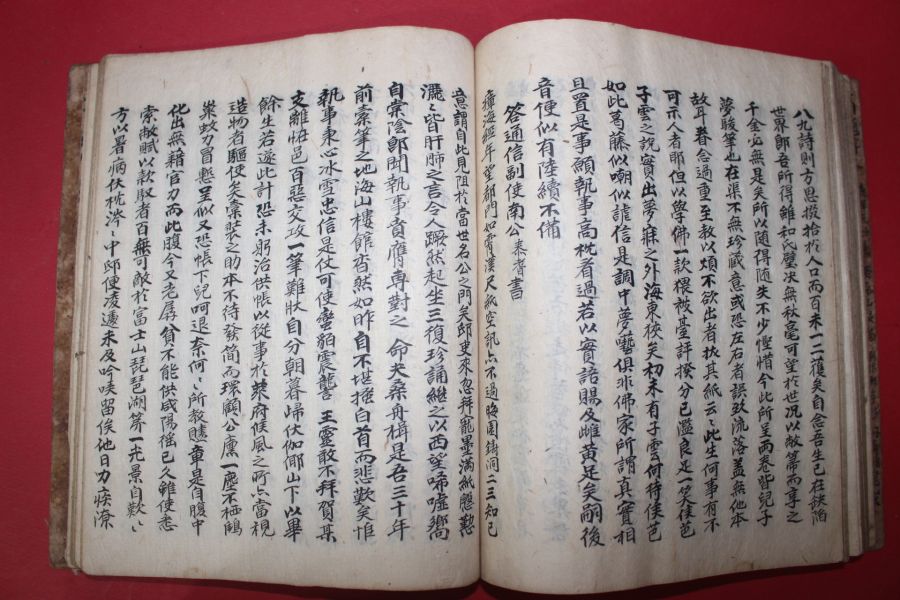 八九詩則方思掇拾於人口而百未一二獲矣自念吾生已在缺陷
世界鄙吾所得雖和氏璧决無秋毫可望於世况以敝箒而享之
千金必無是矣所以隨得隨失不少慳惜今此所呈兩卷皆兒子
夢駿筆也在渠不無珍藏意或恐左右者誤致流落盖無他本
故耳眷念過重至教以煩不欲出者扳其紙云云此生何事有不
可示人者耶但以學佛一款偎被臺評撥分已濫良足一笑侯芭
子雲之說實出夢寐之外海東狹矣初未有子雲何待侯芭
如此葛藤似嘲似謔信是調中夢囈俱非佛家所謂真實相
且置是事願執事高枕看過若以實語賜及雌黄是矣嗣後
音便似有陸續不備
答通信副使南公泰耆書
瘴海經年望都門如霄漢尺紙空訊亦不過晦園錡洞二三知已
意謂自此見阻於當世名公之門矣邸吏來忽拜寵墨滿紙慇懃
灑灑皆肝肺之言令人蹶然起坐三復珍誦繼之以西望啼噓嚮
自棠陰鄭聞執事膏膺專對之 命夫桑舟楫是吾三十年
前橐筆之地海山樓館森然如昨自不堪撫白首而悲歎矣惟
執事秉心冰雪忠信是仗可使蠻貊震讋 王靈敢不拜賀某
支離恠邑百惡交攻一筆難狀自分朝暮歸伏伽倻山下以畢
餘生若遂此計恐未躬治供帳以從事於萊府候風之所亦當視
造物者驅使矣橐裝之助本不待發簡而環顧公廪一塵不栖鵰
粟蚊力冒懸呈似又恐帳下兒呵退奈何何所教贐章是自腹中
化出無藉官力而此腹今又老孱貧不能供咸陽徭已久雖使悉
索敝賦以款取者百無可敵於富士山琵琶湖等一光景自歎歎
方以暑病伏枕涔涔中邸便凌遽未及吟唉留俟他日力疾潦